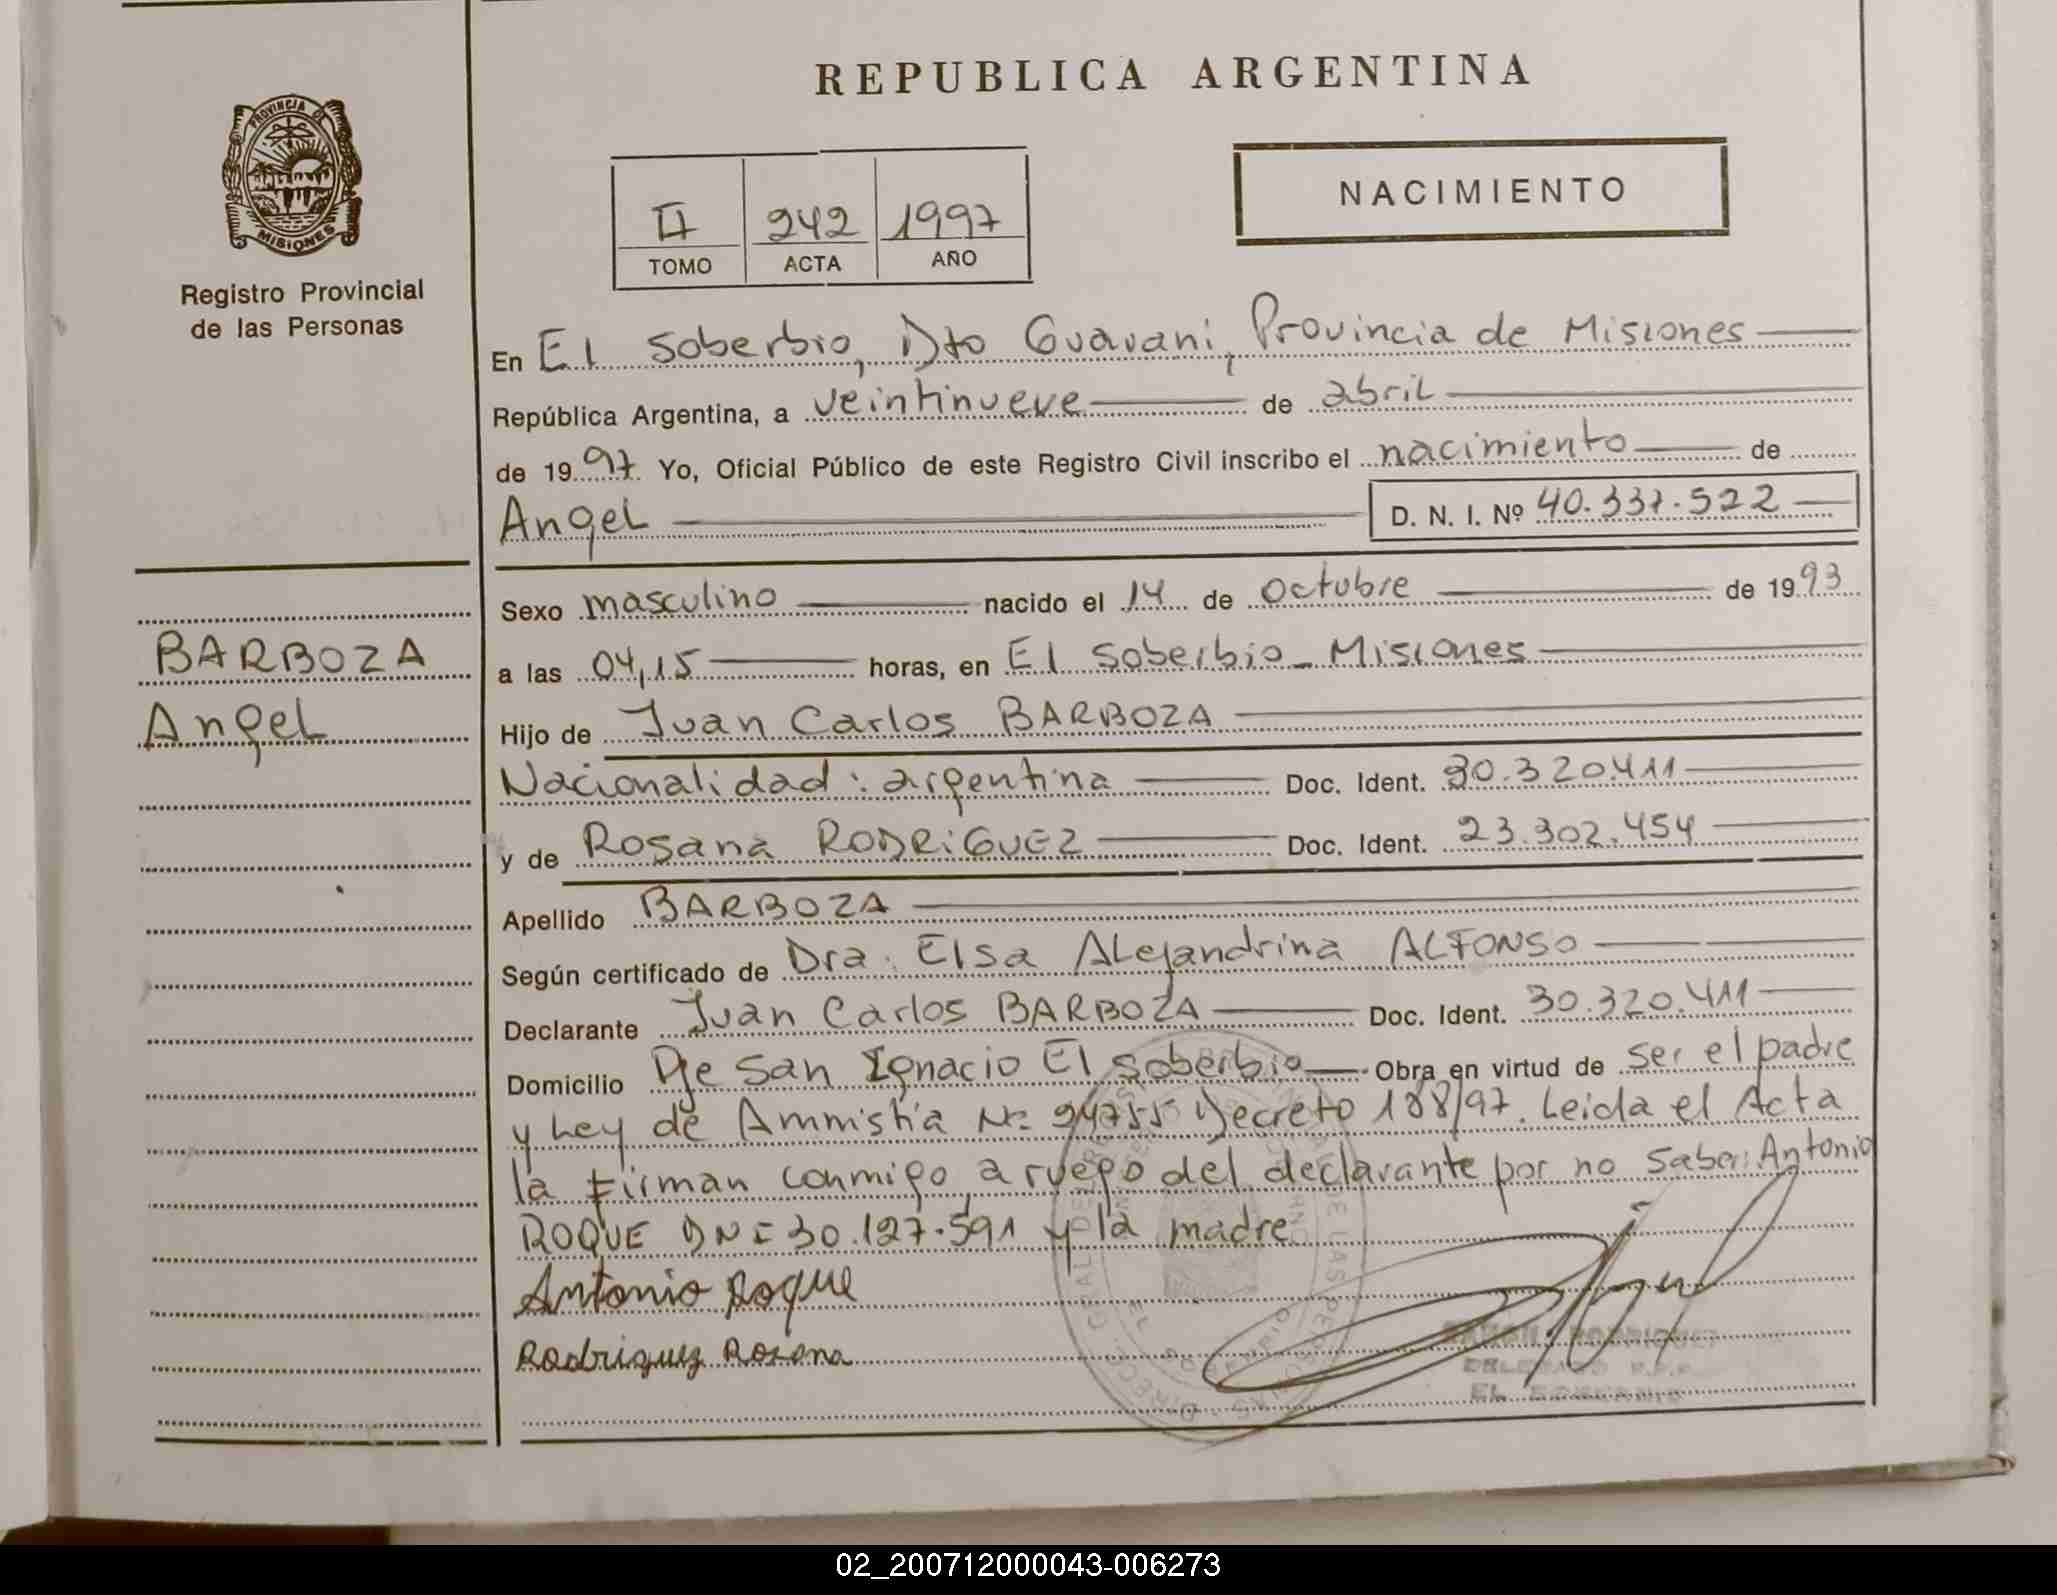 REPUBLICA ARGENTINA
PROVINCIA DE
MISIONES
Registro Provincial
de las Personas
NACIMIENTO
II 242 1997
TOMO ACTA AÑO
En El Soberbio, Dto Guarani, Provincia de Misiones
República Argentina, a veintinueve de abril
de 1997 Yo, Oficial Público de este Registro Civil inscribo el nacimiento de
Angel D. N. I. Nº 40.337.522
Sexo masculino nacido el 14 de octubre de 1993
a las 04,15 horas, en El Soberbio - Misiones
BARBOZA
Angel
Hijo de Juan Carlos BARBOZA
Nacionalidad: argentina Doc. Ident. 30.320.411
y de Rosana RODRIGUEZ Doc. Ident. 23.302.454
Apellido BARBOZA
Según certificado de Dra. Elsa Alejandrina ALFONSO
Declarante Juan Carlos BARBOZA Doc. Ident. 30.320.411
Domicilio Pje San Ignacio El Soberbio Obra en virtud de ser el padre
y Ley de Amnistia Nº 24755 Decreto 188/97. Leida el Acta
la firman conmigo, a ruego del declarante por no saber: Antonio
ROQUE DNI 30.127.591 y la madre
Antonio Roque
Rodriguez Rosana
RAMON RODRIGUEZ
DELEGADO R.P.P.
EL SOBERBIO
02_200712000043-006273